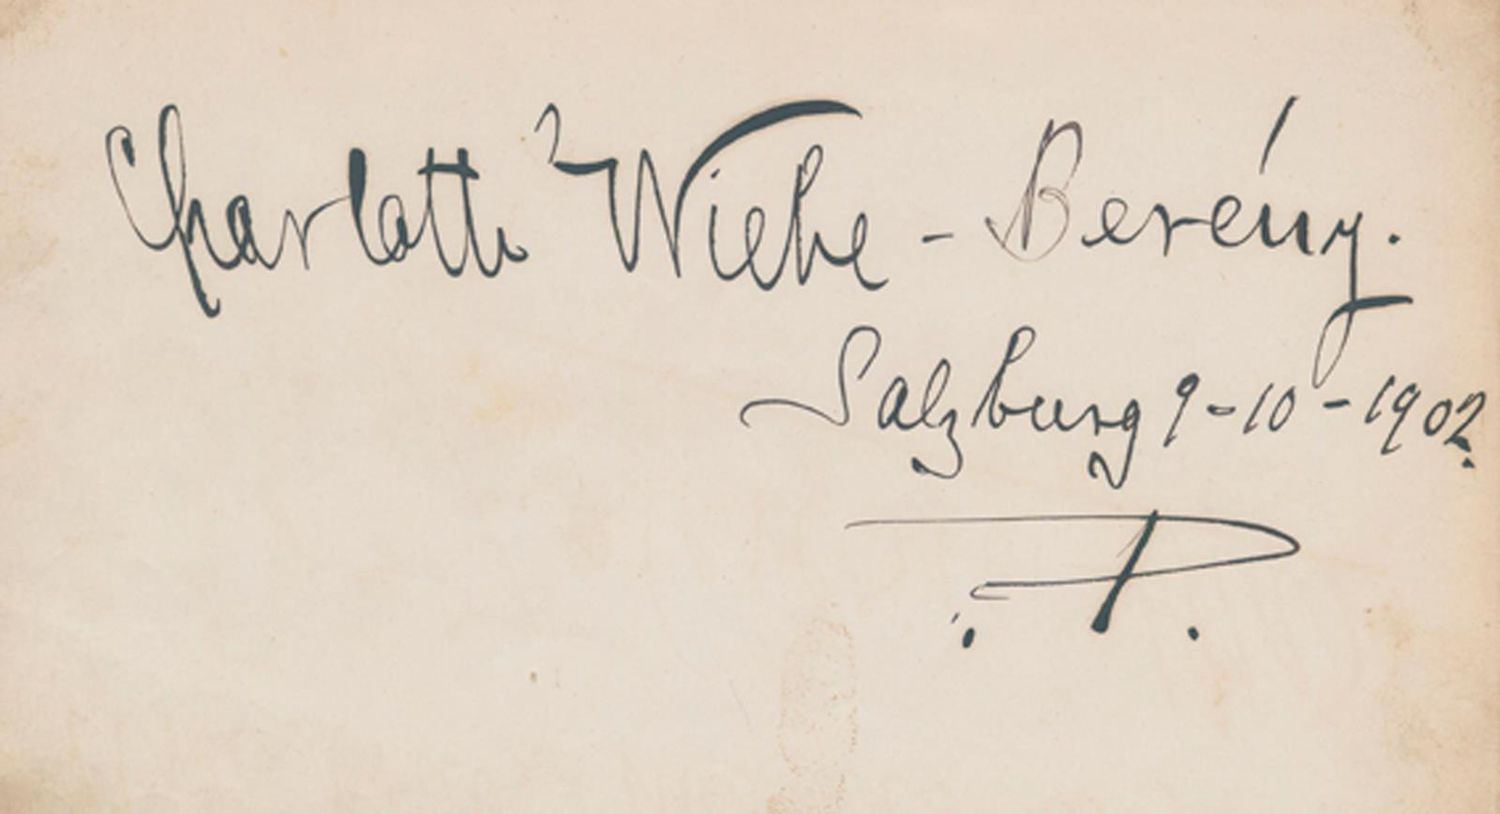 Charlotte Wiehe - Berény.
Salzburg 9-10-1902.